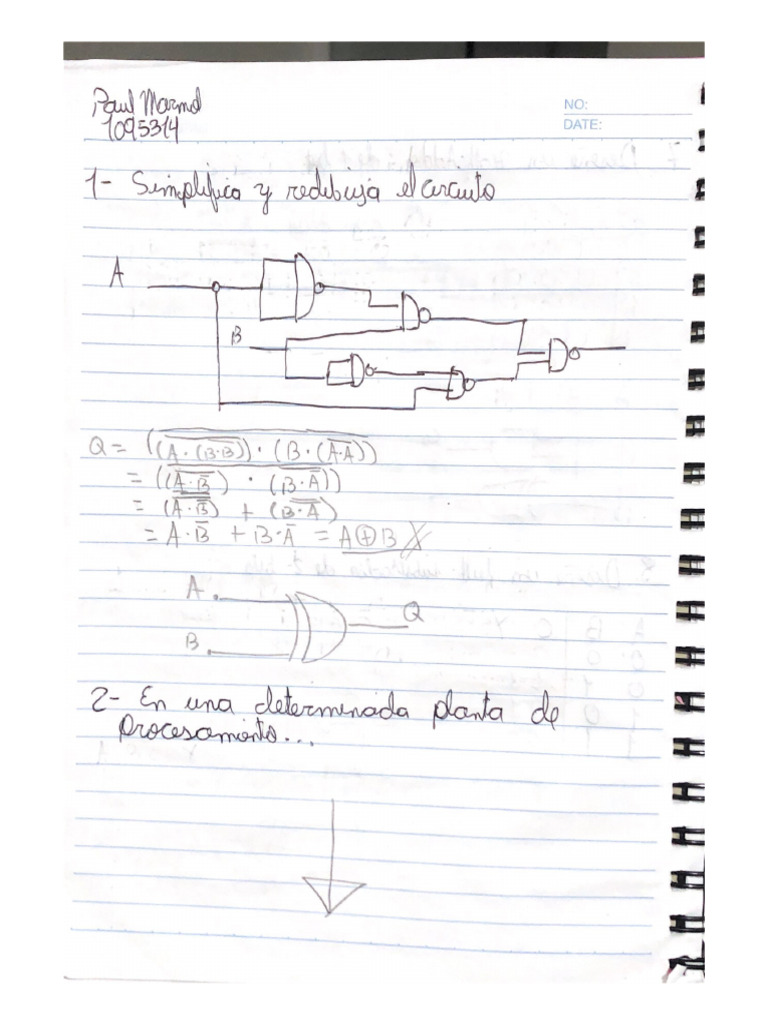 Paul Marmol
1095314
NO:
DATE:
1- Simplifica y redibuja el circuito
A
B
Q = ((A̅·̅(̅B̅·̅B̅)̅)̅ · (B·(A̅·̅A̅)))
= ((A̅·̅B̅) · (B·A̅))
= (A·B̅) + (B·A̅)
= A·B̅ + B·A̅ = A⊕B
A
Q
B
2- En una determinada planta de
procesamiento...